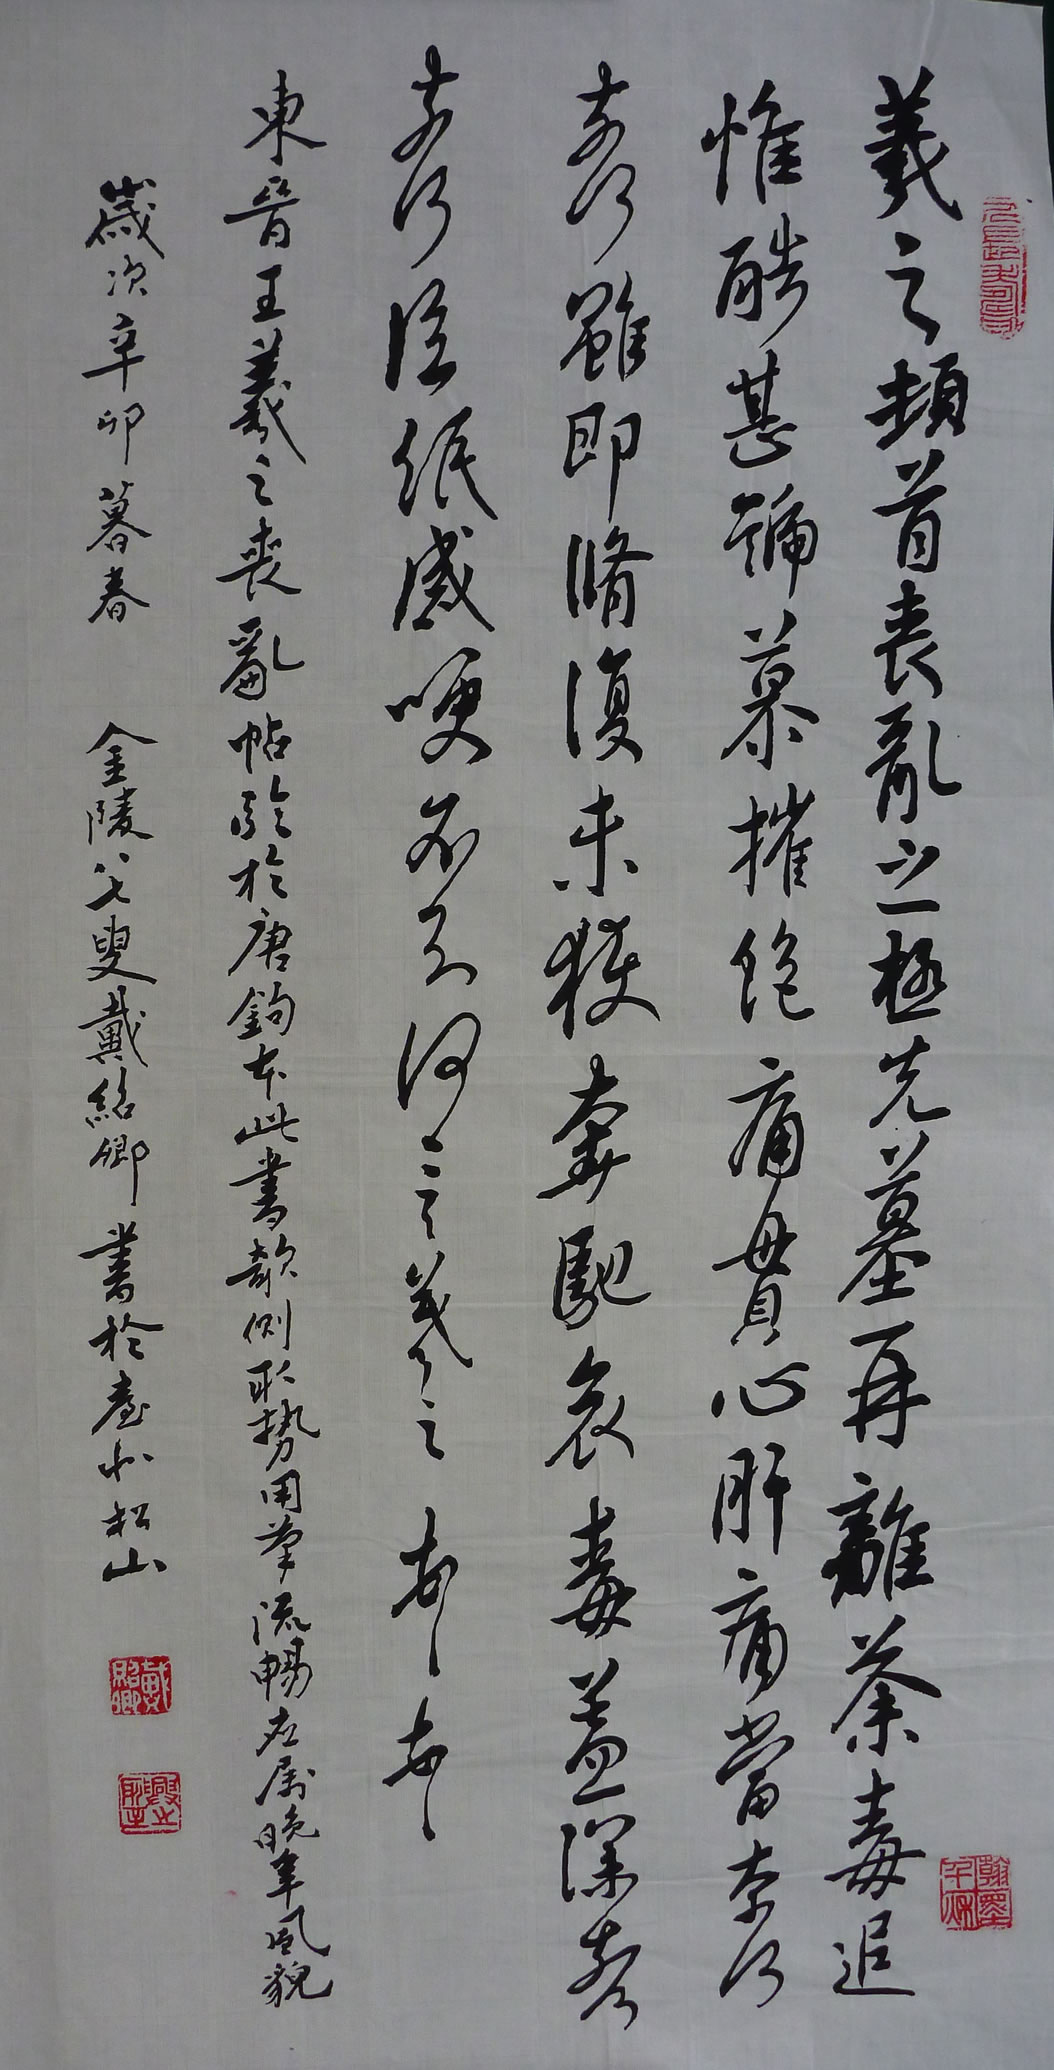 羲之頓首喪亂之極先墓再離荼毒追
惟酷甚號慕摧絕痛貫心肝痛當奈何
奈何雖即脩復未獲奔馳哀毒益深奈何
奈何臨紙感哽不知何言羲之頓首頓首
東晉王羲之喪亂帖臨於唐鉤本此書欹側取勢用筆流暢應屬晚年風貌
歲次辛卯暮春 金陵八七叟戴紹卿書於臺北松山
戴紹卿
翰墨千秋